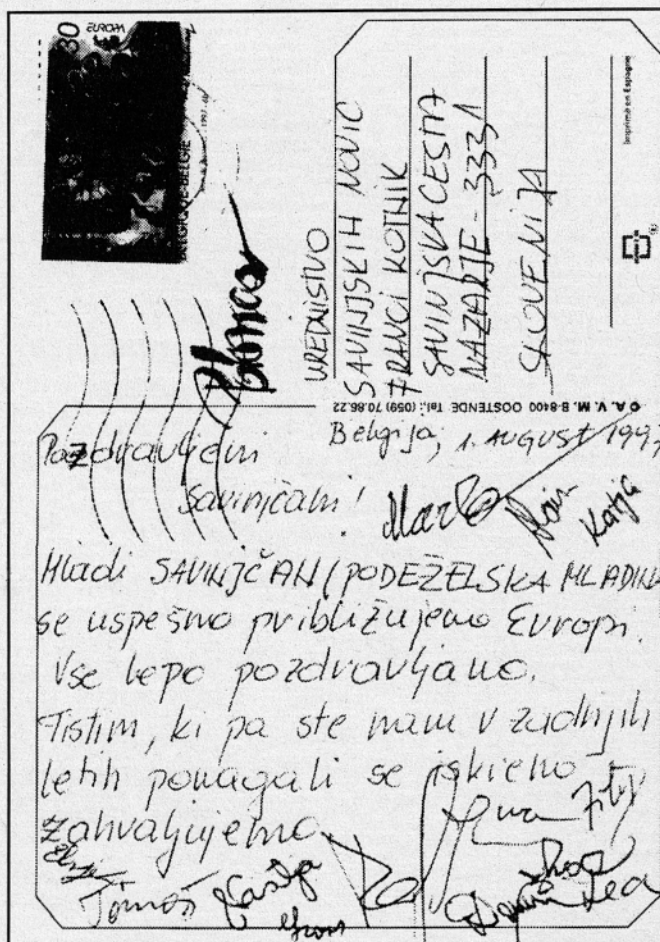 30
EUROPA
BELGIQUE-BELGIË
Blanca
UREDNIŠTVO
SAVINJSKIH NOVIC
FRANCI KOTNIK
SAVINJSKA CESTA
NAZARJE - 3331
SLOVENIJA
Imprimé en Espagne
© A. V. M. B-8400 OOSTENDE Tel.: (059) 70.86.22
Belgija, 1. AUGUST 1997
Pozdravljeni
Savinjčani!
Marko
Katja
Mladi SAVINJČANI (PODEŽELSKA MLADINA
se uspešno približujemo Evropi.
Vse lepo pozdravljamo.
Tistim, ki pa ste nam v zadnjih
letih pomagali se iskreno
zahvaljujemo.
Tomaž Nastja
Lea